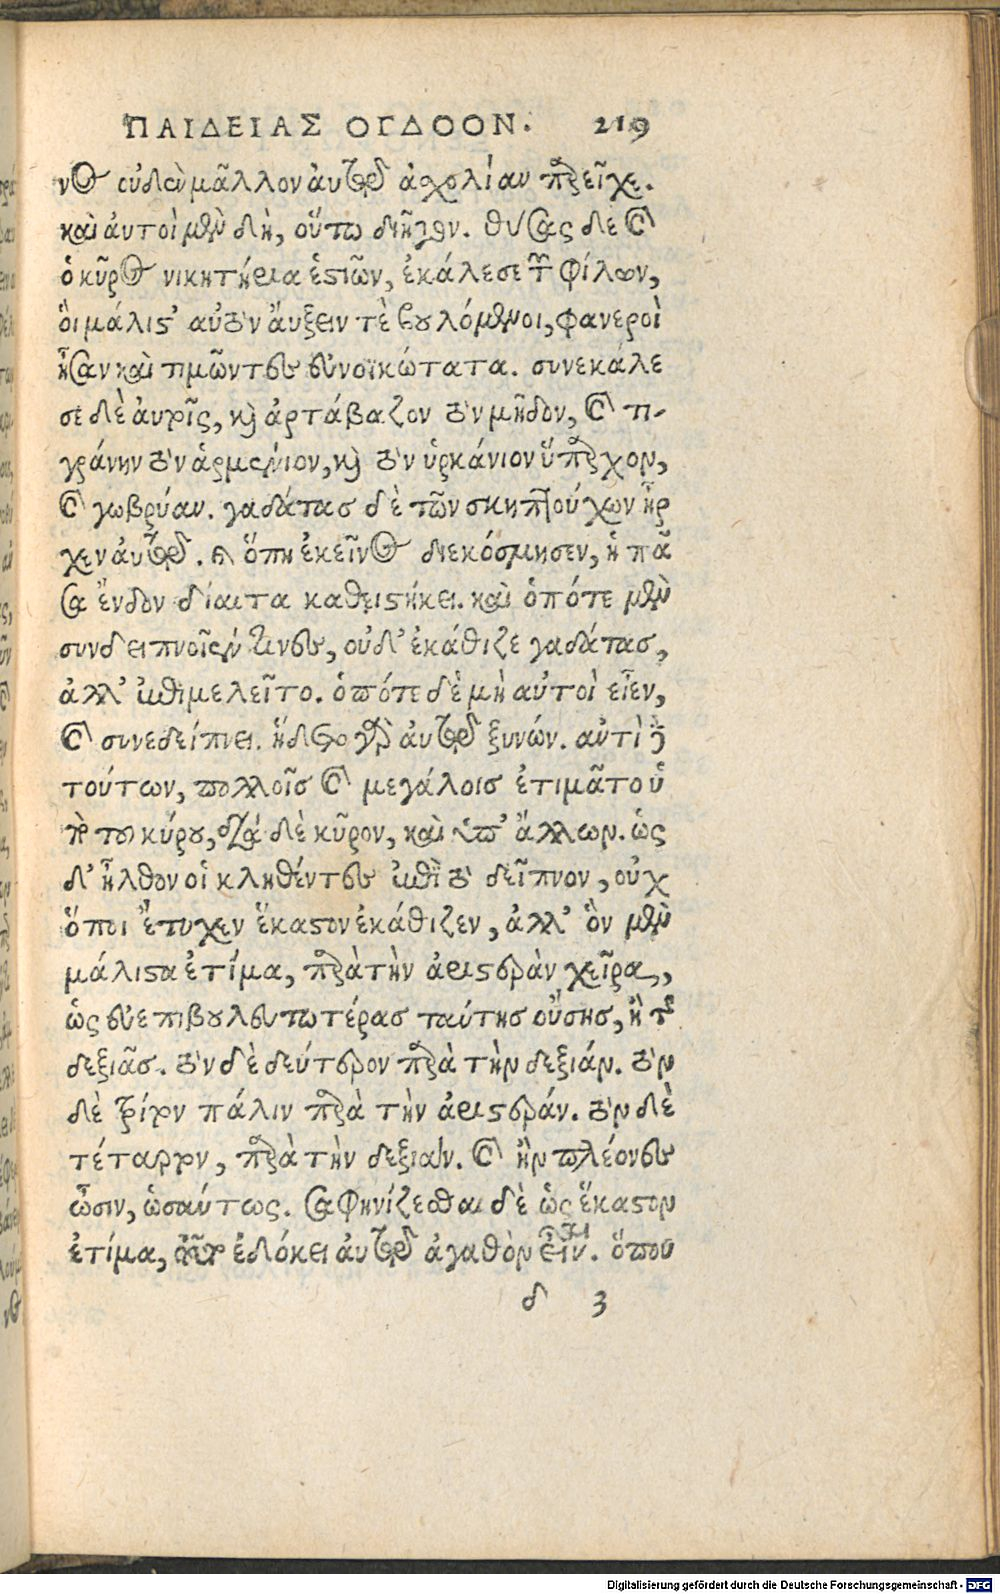 ΠΑΙΔΕΙΑΣ ΟΓΔΟΟΝ. 219
νος οὐδὲν μᾶλλον ἀυτῷ ἀχολίαν παρεῖχε.
καὶ ἀυτοὶ μὲν δὴ, οὕτω διῆγον. θύσας δὲ καὶ
ὁ κῦρος νικητήρια ἑστιῶν, ἐκάλεσε τῶν φίλων,
ὃι μάλιστ' αὐτὸν ἄυξειν τὲ βουλόμενοι, φανεροὶ
ἦσαν καὶ τιμῶντες εὐνοϊκώτατα. συνεκάλε
σε δὲ ἀυτοῖς, καὶ ἀρτάβαζον τὸν μῆδον, καὶ τι-
γράνην τὸν ἀρμένιον, καὶ τὸν ὑρκάνιον ὕπαρχον,
καὶ γωβρύαν. γαδάτας δὲ τῶν σκηπτούχων ἦρ
χεν ἀυτῷ. καὶ ὅπη ἐκεῖνος διεκόσμησεν, ἡ πᾶ
σα ἔνδον δίαιτα καθειστήκει. καὶ ὁπότε μὲν
συνδειπνοῖέν τινες, οὐδ' ἐκάθιζε γαδάτας,
ἀλλ' ἐπεμελεῖτο. ὁπότε δὲ μὴ αὐτοὶ εἶεν,
καὶ συνεδείπνει. ἥδετο γὰρ ἀυτῷ ξυνών. αντὶ δὲ
τούτων, πολλοῖς καὶ μεγάλοις ἐτιμᾶτο ὑ
πὸ του κύρου, διὰ δὲ κῦρον, καὶ ὑπ' ἄλλων. ὡς
δ' ἦλθον οἱ κληθέντες ἐπὶ τὸ δεῖπνον, οὐχ
ὅποι ἔτυχεν ἕκαστον ἐκάθιζεν, ἀλλ' ὃν μὲν
μάλιστα ἐτίμα, παρὰ τὴν ἀριστερὰν χεῖρα,
ὡς εὐεπιβουλευτωτέρας ταύτης οὔσης, ἢ τῆς
δεξιᾶς. τὸν δὲ δεύτερον παρὰ τὴν δεξιάν. τὸν
δὲ τρίτον πάλιν παρὰ τὴν ἀριστεράν. τὸν δὲ
τέταρτον, παρὰ τὴν δεξιάν. καὶ ἢν πλέονες
ὦσιν, ὡσαύτως. σαφηνίζεσθαι δὲ ὡς ἕκαστον
ἐτίμα, τοῦτο ἐδόκει ἀυτῷ ἀγαθὸν εἶναι. ὅπου
δ 3